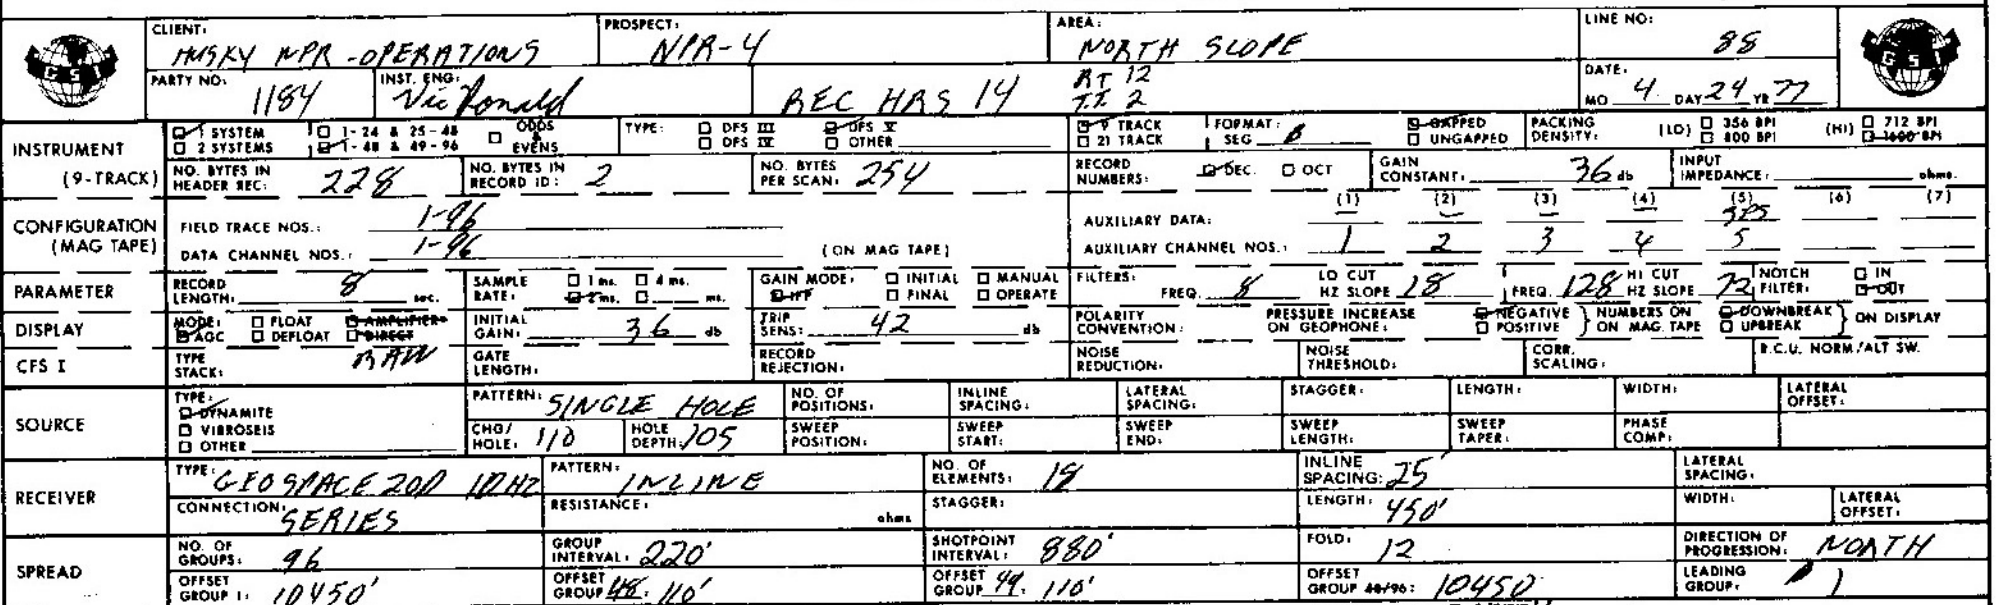 CLIENT: HUSKY NPR-OPERATIONS PROSPECT: NPR-4 AREA: NORTH SLOPE LINE NO: 88
GSI GSI
PARTY NO: 1184 INST. ENG: Vic Ronald REC HRS 14 RT 12 T.T. 2 DATE: MO 4 DAY 24 YR 77
INSTRUMENT (9-TRACK) 1 SYSTEM 1-24 & 25-48 ODDS & EVENS TYPE: DFS III DFS V 9 TRACK FORMAT: SEG B GAPPED PACKING DENSITY: (LO) 356 BPI (HI) 712 BPI
2 SYSTEMS 1-48 & 49-96 DFS IV OTHER 21 TRACK UNGAPPED 800 BPI 1600 BPI
NO. BYTES IN HEADER REC: 228 NO. BYTES IN RECORD ID: 2 NO. BYTES PER SCAN: 254 RECORD NUMBERS: DEC. OCT GAIN CONSTANT: 36 db INPUT IMPEDANCE: ohms.
CONFIGURATION (MAG TAPE) FIELD TRACE NOS.: 1-96 AUXILIARY DATA: (1) (2) (3) (4) (5) (6) (7)
DATA CHANNEL NOS.: 1-96 (ON MAG TAPE) AUXILIARY CHANNEL NOS.: 1 2 3 4 5
PARAMETER RECORD LENGTH: 8 sec. SAMPLE RATE: 1 ms. 4 ms. 2 ms. ms. GAIN MODE: INITIAL MANUAL IFP FINAL OPERATE FILTERS: FREQ. 8 LO CUT HZ SLOPE 18 FREQ. 128 HI CUT HZ SLOPE 72 NOTCH FILTER: IN OUT
DISPLAY MODE: FLOAT AMPLIFIER AGC DEFLOAT DIRECT INITIAL GAIN: 36 db TRIP SENS: 42 db POLARITY CONVENTION: PRESSURE INCREASE ON GEOPHONE: NEGATIVE POSITIVE NUMBERS ON ON MAG. TAPE DOWNBREAK UPBREAK ON DISPLAY
CFS I TYPE STACK: RAW GATE LENGTH: RECORD REJECTION: NOISE REDUCTION: NOISE THRESHOLD: CORR. SCALING: R.C.U. NORM/ALT SW.
SOURCE TYPE: DYNAMITE VIBROSEIS OTHER PATTERN: SINGLE HOLE NO. OF POSITIONS: INLINE SPACING: LATERAL SPACING: STAGGER: LENGTH: WIDTH: LATERAL OFFSET:
CHG/HOLE: 110 HOLE DEPTH: 105 SWEEP POSITION: SWEEP START: SWEEP END: SWEEP LENGTH: SWEEP TAPER: PHASE COMP:
RECEIVER TYPE: GEOSPACE 20D 10HZ PATTERN: INLINE NO. OF ELEMENTS: 18 INLINE SPACING: 25' LATERAL SPACING:
CONNECTION: SERIES RESISTANCE: ohms STAGGER: LENGTH: 450' WIDTH: LATERAL OFFSET:
SPREAD NO. OF GROUPS: 96 GROUP INTERVAL: 220' SHOTPOINT INTERVAL: 880' FOLD: 12 DIRECTION OF PROGRESSION: NORTH
OFFSET GROUP 1: 10450' OFFSET GROUP 48: 110' OFFSET GROUP 49: 110' OFFSET GROUP 48/96: 10450 LEADING GROUP: 1